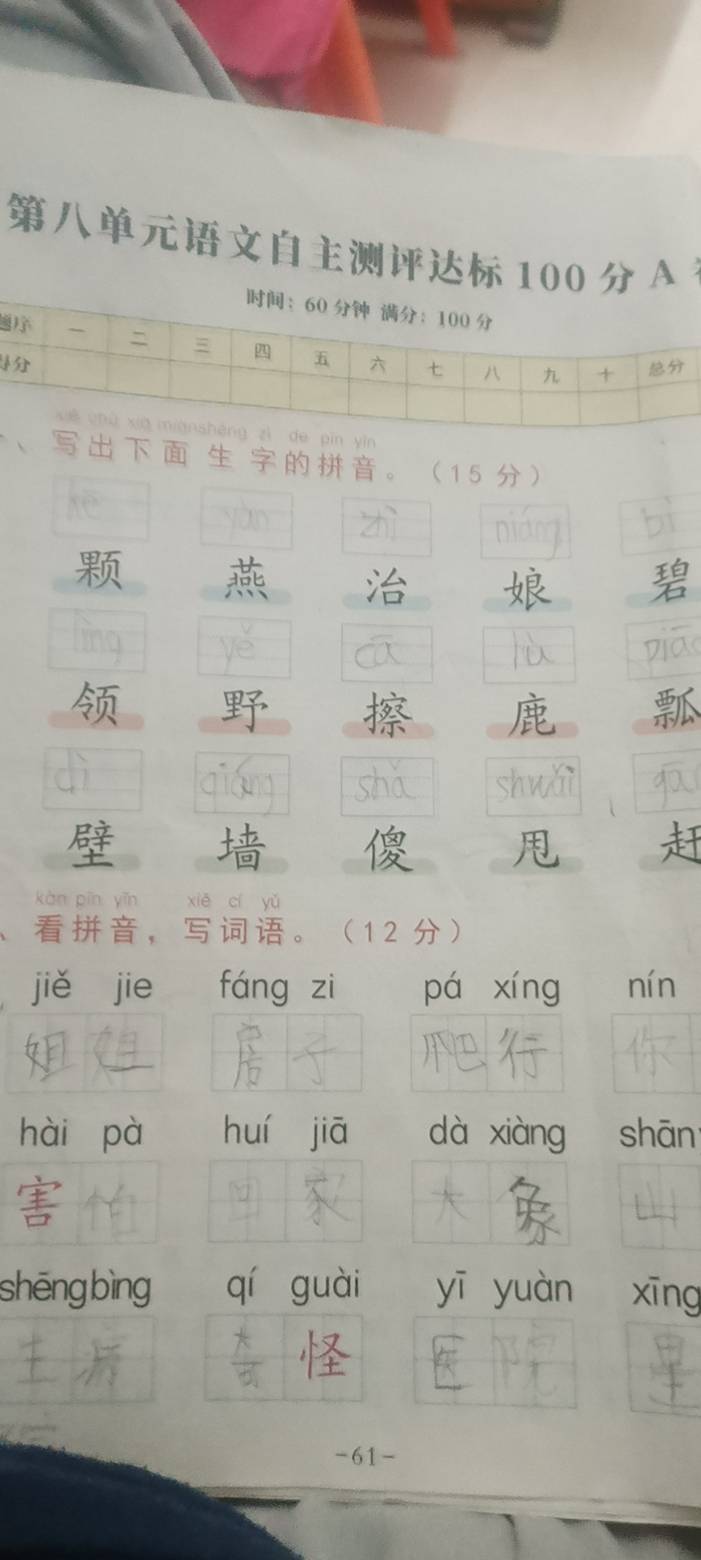 第八单元语文自主测评达标100分 A
时间：60分钟 满分：100分
题序 一 二 三 四 五 六 七 八 九 十 总分
得分
xiě chū xià miànshēng zì de pīn yīn
、写出下面生字的拼音。（15分）
kē yàn zhì niáng bì
颗 燕 治 娘 碧
lǐng yě cā lù piáo
领 野 擦 鹿 瓢
dì qiáng shǎ shuǎi gǎ
壁 墙 傻 甩 赶
kàn pīn yīn xiě cí yǔ
、看拼音，写词语。（12分）
jiě jie fáng zi pá xíng nín
姐姐 房子 爬行 你
hài pà huí jiā dà xiàng shān
害怕 回家 大象 山
shēngbìng qí guài yī yuàn xīng
生病 奇怪 医院 星
-61-